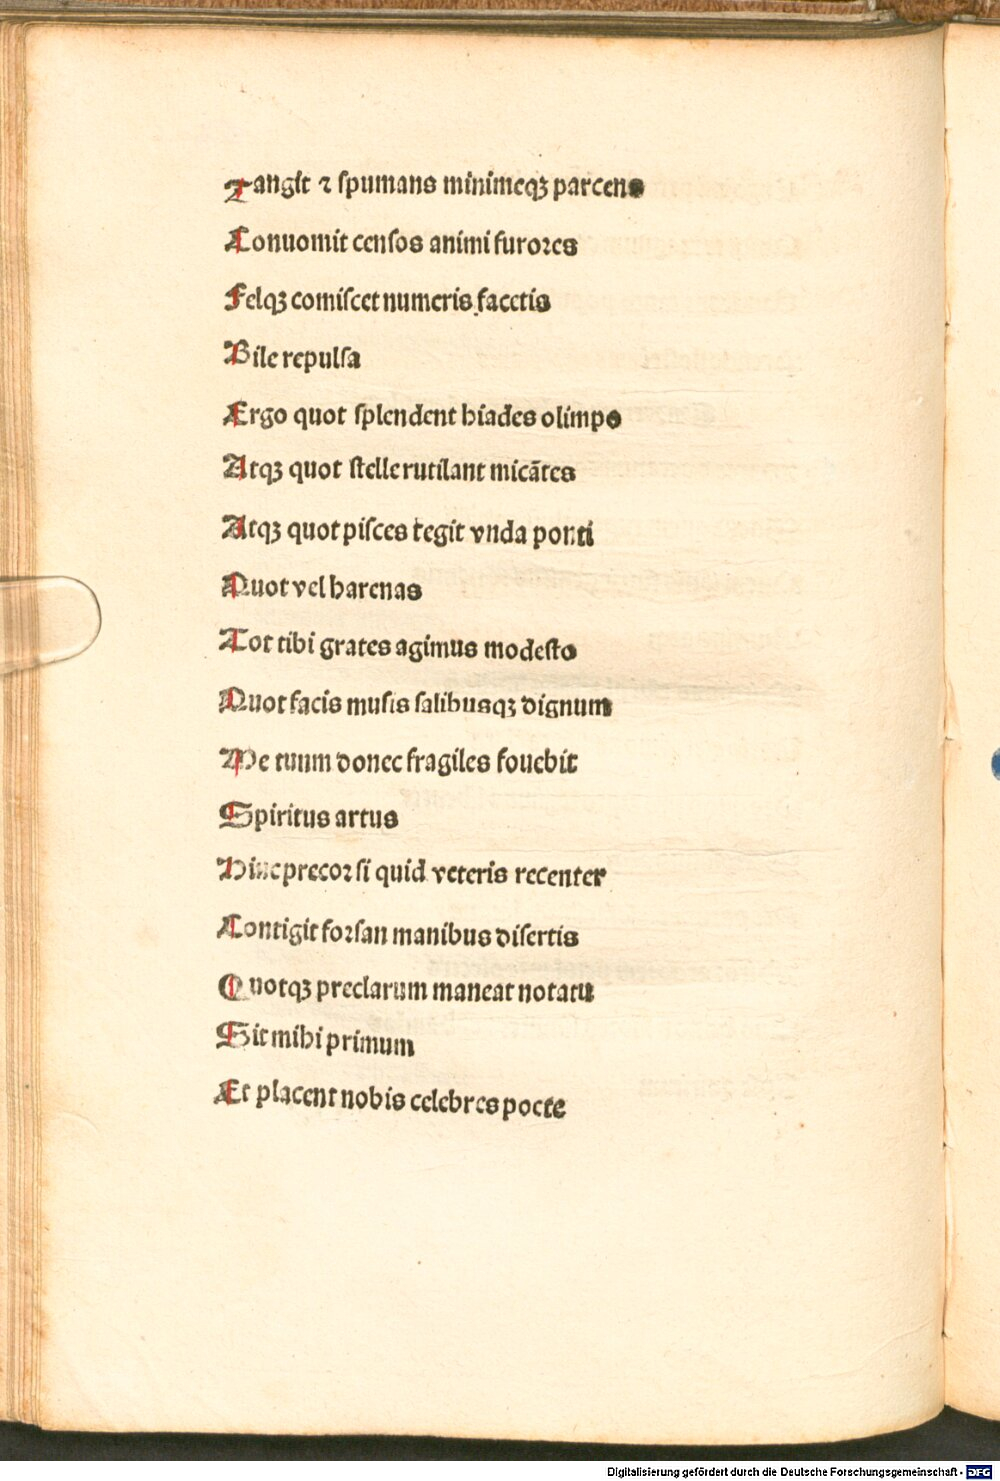 Tangit ⁊ spumans minimeqꝫ parcens
Conuomit censos animi furores
Felqꝫ comiscet numeris facetis
Bile repulsa
Ergo quot splendent hiades olimpo
Atqꝫ quot stelle rutilant micātes
Atqꝫ quot pisces tegit vnda ponti
Quot vel harenas
Tot tibi grates agimus modesto
Quot facis musis salibusqꝫ dignum
Me tuum donec fragiles fouebit
Spiritus artus
Hinc precor si quid veteris recenter
Contigit forsan manibus disertis
Quotqꝫ preclarum maneat notatu
Sit mihi primum
Et placent nobis celebres poete
Digitalisierung gefördert durch die Deutsche Forschungsgemeinschaft - DFG